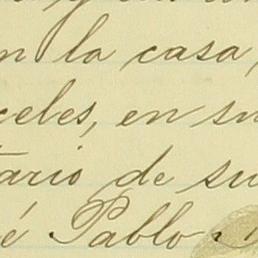 en la casa
celes, en su
tario de su
é Pablo.